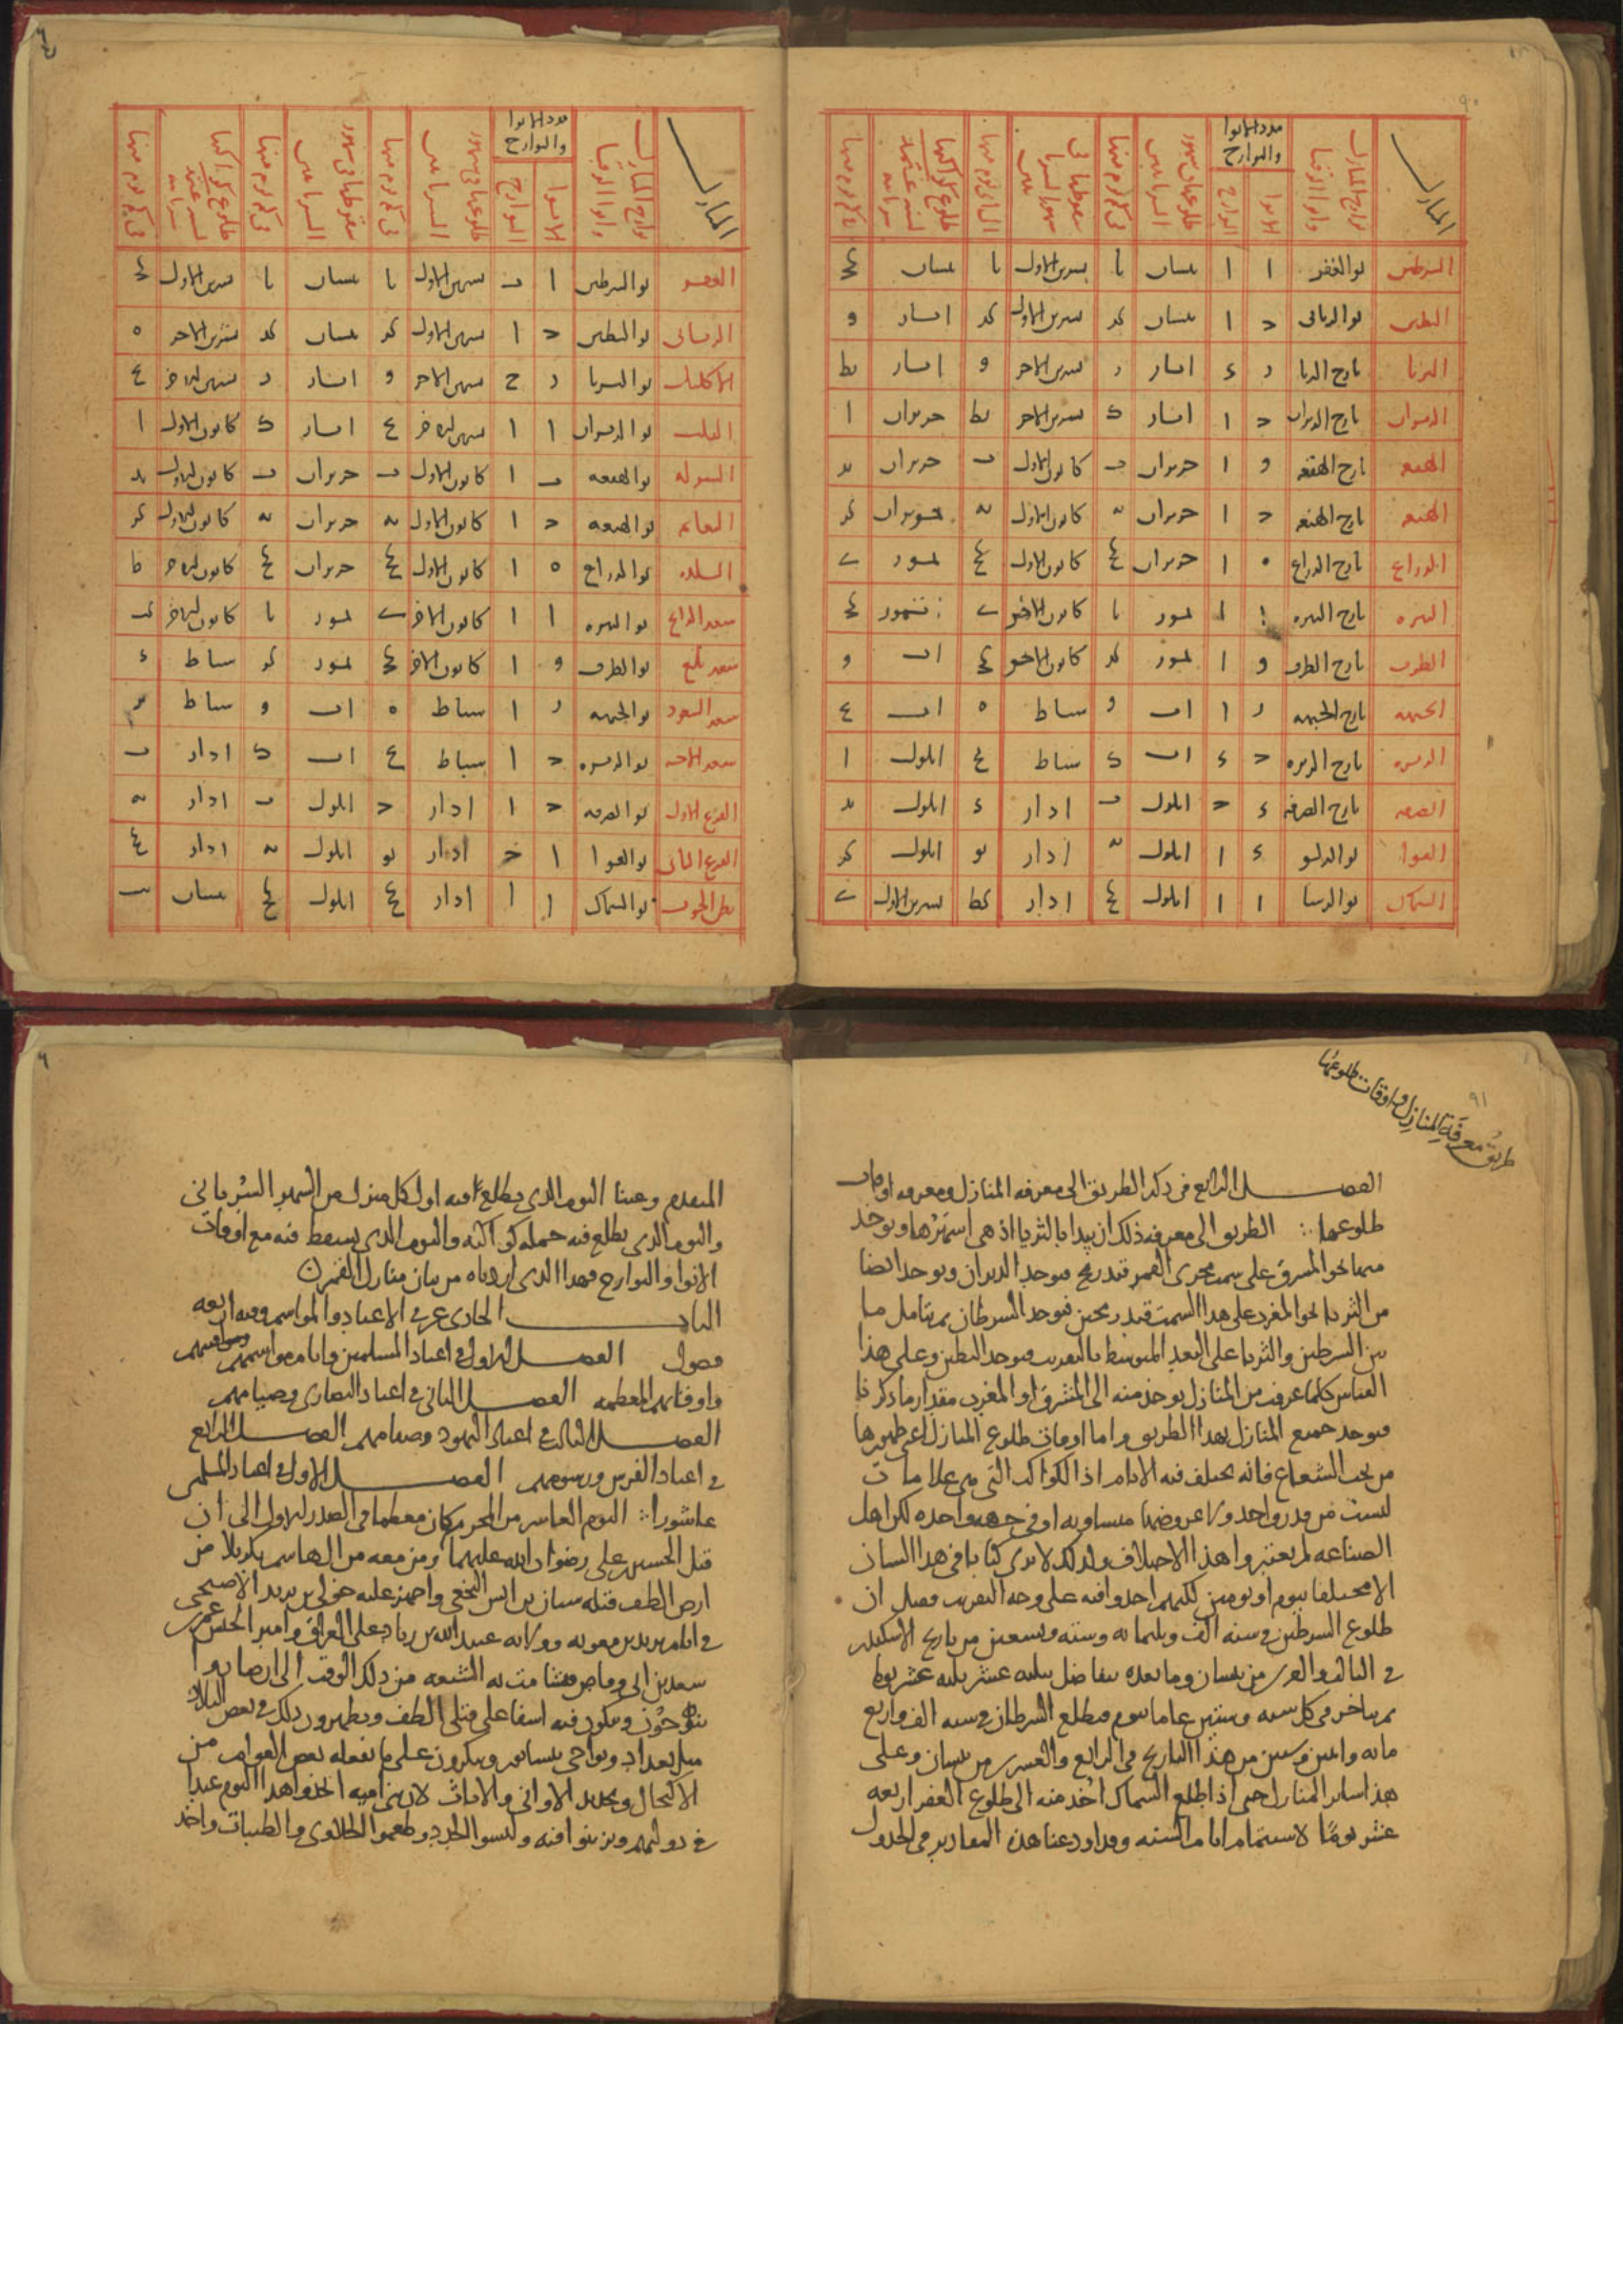 ٩٠
المنازل
بوارح المنازل وانوا الرقبا
مدد الانوا والبوارح
الانوا
البوارح
طلوعها فى شهور السريانيين
فى كم يوم منها
سقوطها فى شهور السريانيين
طلوع كواكبها
السرطين نو الغفر ا ا نيسان يا تشرين الاول يا نيسان كح
البطين نو الزبانى ح ا نيسان كد تشرين الاول كد ايار و
الثريا بارح الثريا ز ء ايار ز تشرين الاخر و ايار يط
الدبران بارح الدبران ح ا ايار ك تشرين الاخر يط حزيران ا
الهقعه بارح الهقعه و ا حزيران ب كانون الاول ب حزيران يد
الهنعه بارح الهنعه ح ا حزيران يه كانون الاول يه حزيران كز
الذراع بارح الذراع ه ا حزيران كح كانون الاول كح تموز ى
النثره بارح النثره ا ا تموز يا كانون الاخر ى تموز كح
الطرف بارح الطرف و ا تموز كد كانون الاخر كح اب و
الجبهه بارح الجبهه ز ا اب و شباط ه اب ع
الزبره بارح الزبره ح ء اب ك شباط ع ايلول ا
الصرفه بارح الصرفه ء ح ايلول ب ادار ء ايلول يد
العوا نو الدلو ء ا ايلول يه ادار يو ايلول كز
السماك نو الرشا ا ا ايلول كح ادار كط تشرين الاول ى
المنازل
بوارح المنازل وانوا الرقبا
مدد الانوا والبوارح
الانوا
البوارح
طلوعها فى شهور السريانيين
فى كم يوم منها
سقوطها فى شهور السريانيين
فى كم يوم منها
طلوع كواكبها
فى كم يوم منها
الغفر نو السرطين ا ب تشرين الاول يا نيسان يا تشرين الاول كح
الزبانى نو البطين ح ا تشرين الاول كد نيسان كد تشرين الاخر ه
الاكليل نو الثريا ز ح تشرين الاخر و ايار ز تشرين الاخر ع
القلب نو الدبران ا ا تشرين الاخر ع ايار ك كانون الاول ا
الشوله نو الهقعه ب ا كانون الاول ب حزيران ب كانون الاول يد
النعايم نو الهنعه ح ا كانون الاول يه حزيران يه كانون الاول كز
البلده نو الذراع ه ا كانون الاول كح حزيران كح كانون الاخر ط
سعد الذابح نو النثره ا ا كانون الاخر ى تموز يا كانون الاخر كب
سعد بلع نو الطرف و ا كانون الاخر كح تموز كد شباط ء
سعد السعود نو الجبهه ز ا شباط ه اب و شباط يز
سعد الاخبيه نو الزبره ح ا شباط ع اب ك ادار ب
الفرغ الاول نو الصرفه ح ا ادار ح ايلول ب ادار يه
الفرغ الثانى نو العوا ا ح ادار يو ايلول يه ادار كح
بطن الحوت نو السماك ا ا ادار كح ايلول كح نيسان ى
٩١
طريق معرفة المنازل واوقات طلوعها
الفصل الرابع فى ذكر الطريق الى معرفه المنازل ومعرفه اوقات
طلوعها ∴ الطريق الى معرفه ذلك ان يبدا بالثريا اذ هى اشهرها ويوخذ
منها نحو المشرق على سمت مجرى القمر قيد رمح فيوجد الدبران ويوخذ ايضا
من الثريا نحو المغرب على هذا السمت قيد رمحين فيوجد السرطان ثم يتامل ما
بين السرطين والثريا على البعد المتوسط بالتقريب فيوجد البطين وعلى هذا
القياس كلما عرفت من المنازل يوخذ منه الى المشرق او المغرب مقدار ما ذكرنا
فيوجد جميع المنازل بهذا الطريق واما اوقات طلوع المنازل اعنى ظهورها
من تحت الشعاع فانه يختلف فيه الايام اذ الكواكب التى هى علامات
ليست من قدر واحد ولا عروضها متساويه او فى جهه واحده لكن اهل
الصناعه لم يعتبروا هذا الاختلاف ولذلك لا يرى كتابا فى هذا الشان
الا مختلفا بيوم او يومين لكنهم اخذوا فيه على وجه التقريب فقيل ان
طلوع السرطين فى سنه الف وثلثمايه وسته وتسعين من تاريخ الاسكندر
فى الثالث والعشرين من نيسان وما بعده يتفاضل بثلثه عشر ثلثه عشر يوما
ثم يتاخر فى كل سته وستين عاما بيوم فيطلع السرطان فى سنه الف واربع
مايه واثنين وستين من هذا التاريخ فى الرابع والعشرين من نيسان وعلى
هذا ساير المنازل حتى اذا طلع السماك اخذ منه الى طلوع الغفر اربعه
عشر يوما لاستتمام ايام السنه وقد اودعنا هذه المقادير فى الجدول
المتقدم وعينا اليوم الذى يطلع فيه اول كل منزل من الشهر السريانى
واليوم الذى يطلع فيه جمله كواكبه واليوم الذى يسقط فيه مع اوقات
الانوا والبوارح فهذا الذى اردناه من بيان منازل القمر
الباب الحادى عشر فى الاعياد والمواسم وفيه اربعه
فصول الفصل الاول فى اعياد المسلمين وايام مواسمهم
واوقاتهم المعظمه الفصل الثانى فى اعياد النصارى وصيامهم
الفصل الثالث فى اعياد اليهود وصيامهم الفصل الرابع
فى اعياد الفرس ورسومهم الفصل الاول فى اعياد المسلمين
عاشورا ∴ اليوم العاشر من المحرم كان معظما فى الصدر الاول الى ان
قتل الحسين بن على رضوان الله عليهما ومن معه من ال هاشم بكربلا من
ارض الطف قتله سنان بن انس النخعى واجهز عليه خولى بن يزيد الاصبحى
فى ايام يزيد بن معويه وولايه عبيد الله بن زياد على العراق وامير الجيش عمر بن
سعد بن ابى وقاص فتشامت به الشيعه من ذلك الوقت الى ان صاروا
ينوحون ويبكون فيه اسفا على قتلى الطف ويظهرون ذلك فى بعض البلاد
مثل بغداد ونواحى نيسابور وينكرون على ما يفعله بعض العوام من
الاكتحال وتجديد الاوانى والاثاث لان بنى اميه اتخذوا هذا اليوم عيدا
فى دولتهم وتزينوا فيه ولبسوا الجديد وطعموا الحلاوى والطيبات واخذ